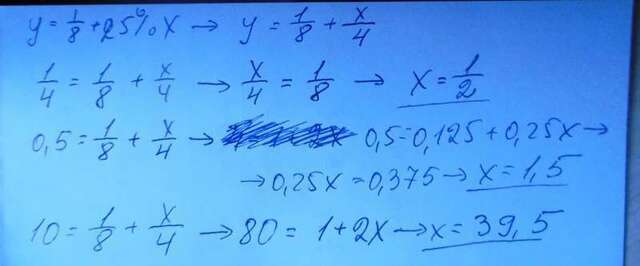 y = 1/8 + 25% x → y = 1/8 + x/4
1/4 = 1/8 + x/4 → x/4 = 1/8 → x = 1/2
0,5 = 1/8 + x/4 → 0,5 = 0,125 + 0,25x →
→ 0,25x = 0,375 → x = 1,5
10 = 1/8 + x/4 → 80 = 1 + 2x → x = 39,5